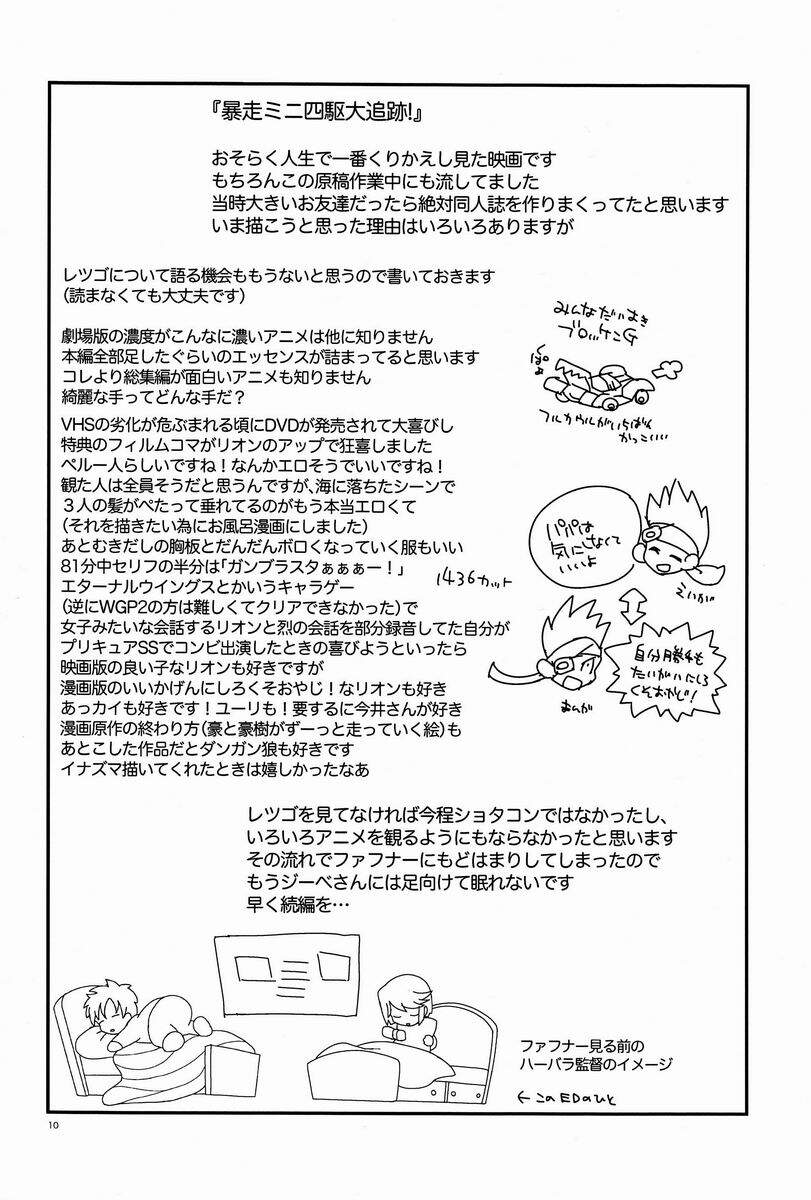 『暴走ミニ四駆大追跡!』
おそらく人生で一番くりかえし見た映画です
もちろんこの原稿作業中にも流してました
当時大きいお友達だったら絶対同人誌を作りまくってたと思います
いま描こうと思った理由はいろいろありますが
レツゴについて語る機会ももうないと思うので書いておきます
(読まなくても大丈夫です)
劇場版の濃度がこんなに濃いアニメは他に知りません
本編全部足したぐらいのエッセンスが詰まってると思います
コレより総集編が面白いアニメも知りません
綺麗な手ってどんな手だ?
VHSの劣化が危ぶまれる頃にDVDが発売されて大喜びし
特典のフィルムコマがリオンのアップで狂喜しました
ペルー人らしいですね!なんかエロそうでいいですね!
観た人は全員そうだと思うんですが、海に落ちたシーンで
3人の髪がぺたって垂れてるのがもう本当エロくて
(それを描きたい為にお風呂漫画にしました)
あとむきだしの胸板とだんだんボロくなっていく服もいい
81分中セリフの半分は「ガンブラスタぁぁぁー!」
1436カット
エターナルウイングスとかいうキャラゲー
(逆にWGP2の方は難しくてクリアできなかった)で
女子みたいな会話するリオンと烈の会話を部分録音してた自分が
プリキュアSSでコンビ出演したときの喜びようといったら
映画版の良い子なリオンも好きですが
漫画版のいいかげんにしろくそおやじ!なリオンも好き
あっカイも好きです!ユーリも!要するに今井さんが好き
漫画原作の終わり方(豪と豪樹がずーっと走っていく絵)も
あとこした作品だとダンガン狼も好きです
イナズマ描いてくれたときは嬉しかったなあ
みんなだいすき
ブロッケンG
フルカウルがいちばん
かっこいい
パパは
気にしなくて
いいよ
えいが
自分勝手も
たいがいにしろ
くそおやじ!
まんが
レツゴを見てなければ今程ショタコンではなかったし、
いろいろアニメを観るようにもならなかったと思います
その流れでファフナーにもどはまりしてしまったので
もうジーベさんには足向けて眠れないです
早く続編を…
ファフナー見る前の
ハーバラ監督のイメージ
←このEDのひと
10